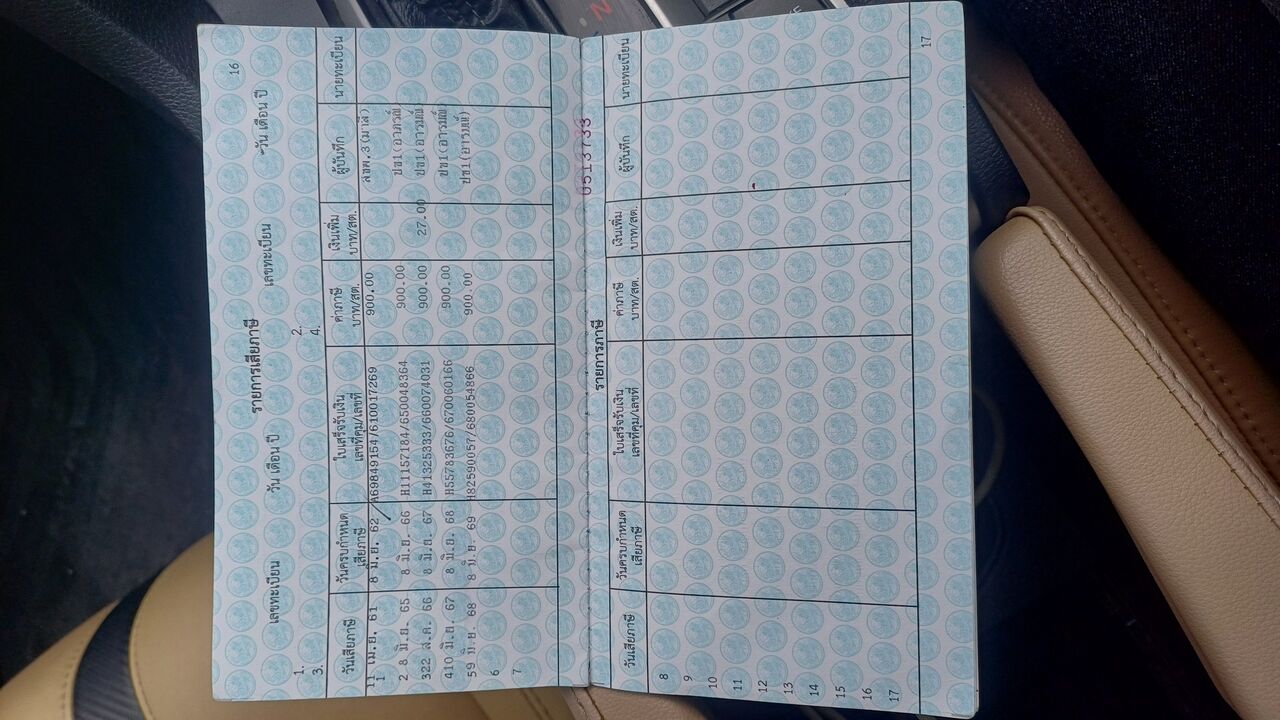 16
รายการเสียภาษี
เลขทะเบียน วัน เดือน ปี เลขทะเบียน วัน เดือน ปี
1. 2.
3. 4.
วันเสียภาษี วันครบกำหนด เสียภาษี ใบเสร็จรับเงิน เลขที่คุม/เลขที่ ค่าภาษี บาท/สต. เงินเพิ่ม บาท/สต. ผู้บันทึก นายทะเบียน
1 11 เม.ย. 61 8 มิ.ย. 62 A69849154/610017269 900.00 สขต.3(มาลี)
2 8 มิ.ย. 65 8 มิ.ย. 66 H11157184/650048364 900.00 ปข1(อาภรณ์
3 22 ส.ค. 66 8 มิ.ย. 67 H41325333/660074031 900.00 27.00 ปข1(อารมณ์
4 10 มิ.ย. 67 8 มิ.ย. 68 H55783676/670060166 900.00 ปข1(อารมณ์
5 9 มิ.ย. 68 8 มิ.ย. 69 H82590057/680054866 900.00 ปข1(อารมณ์)
6
7
0513733
รายการภาษี
วันเสียภาษี วันครบกำหนด เสียภาษี ใบเสร็จรับเงิน เลขที่คุม/เลขที่ ค่าภาษี บาท/สต. เงินเพิ่ม บาท/สต. ผู้บันทึก นายทะเบียน
8
9
10
11
12
13
14
15
16
17
17